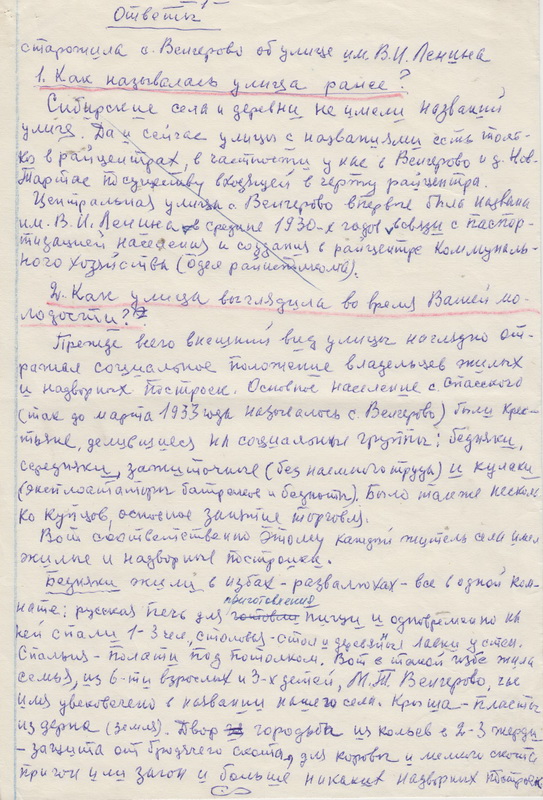 -1-
Ответы
старожила с. Венгерово об улице им. В.И. Ленина
1. Как называлась улица ранее?
Сибирские села и деревни не имели названий
улиц. Да и сейчас улицы с названиями есть толь-
ко в райцентрах, в частности у нас в Венгерово и д. Нов-
Тартас по существу входящей в черту райцентра.
Центральная улица с. Венгерово впервые была названа
им. В.И. Ленина в средине 1930-х годов, в связи с паспор-
тизацией населения и создания в райцентре коммуналь-
ного хозяйства (отдел райисполкома).
2. Как улица выглядила во время Вашей мо-
лодости?
Прежде всего внешний вид улицы наглядно от-
ражал социальное положение владельцев жилых
и надворных построек. Основное население с. Спасского
(так до марта 1933 года называлось с. Венгерово) были крес-
тьяне, делившиеся на социальные группы: бедняки,
середняки, зажиточные (без наемного труда) и кулаки
(эксплоататоры батраков и бедноты). Было также несколь-
ко купцов, основное занятие торговля.
Вот соответственно этому каждый житель села имел
жилые и надворные постройки.
Бедняки жили в избах-развалюхах - все в одной ком-
нате: русская печь для приготовления пищи и одновременно на
ней спали 1-3 чел, столовая - стол и деревянные лавки у стен.
Спальня - полати под потолком. Вот в такой избе жила
семья, из 6-ти взрослых и 3-х детей, М.Т. Венгерово, чье
имя увековечено в названии нашего села. Крыша - пласты
из дерна (земля). Двор городьба из кольев в 2-3 жерди
- защита от бродячего скота, для коровы и мелкого скота
пригон или загон и больше никаких надворных построек